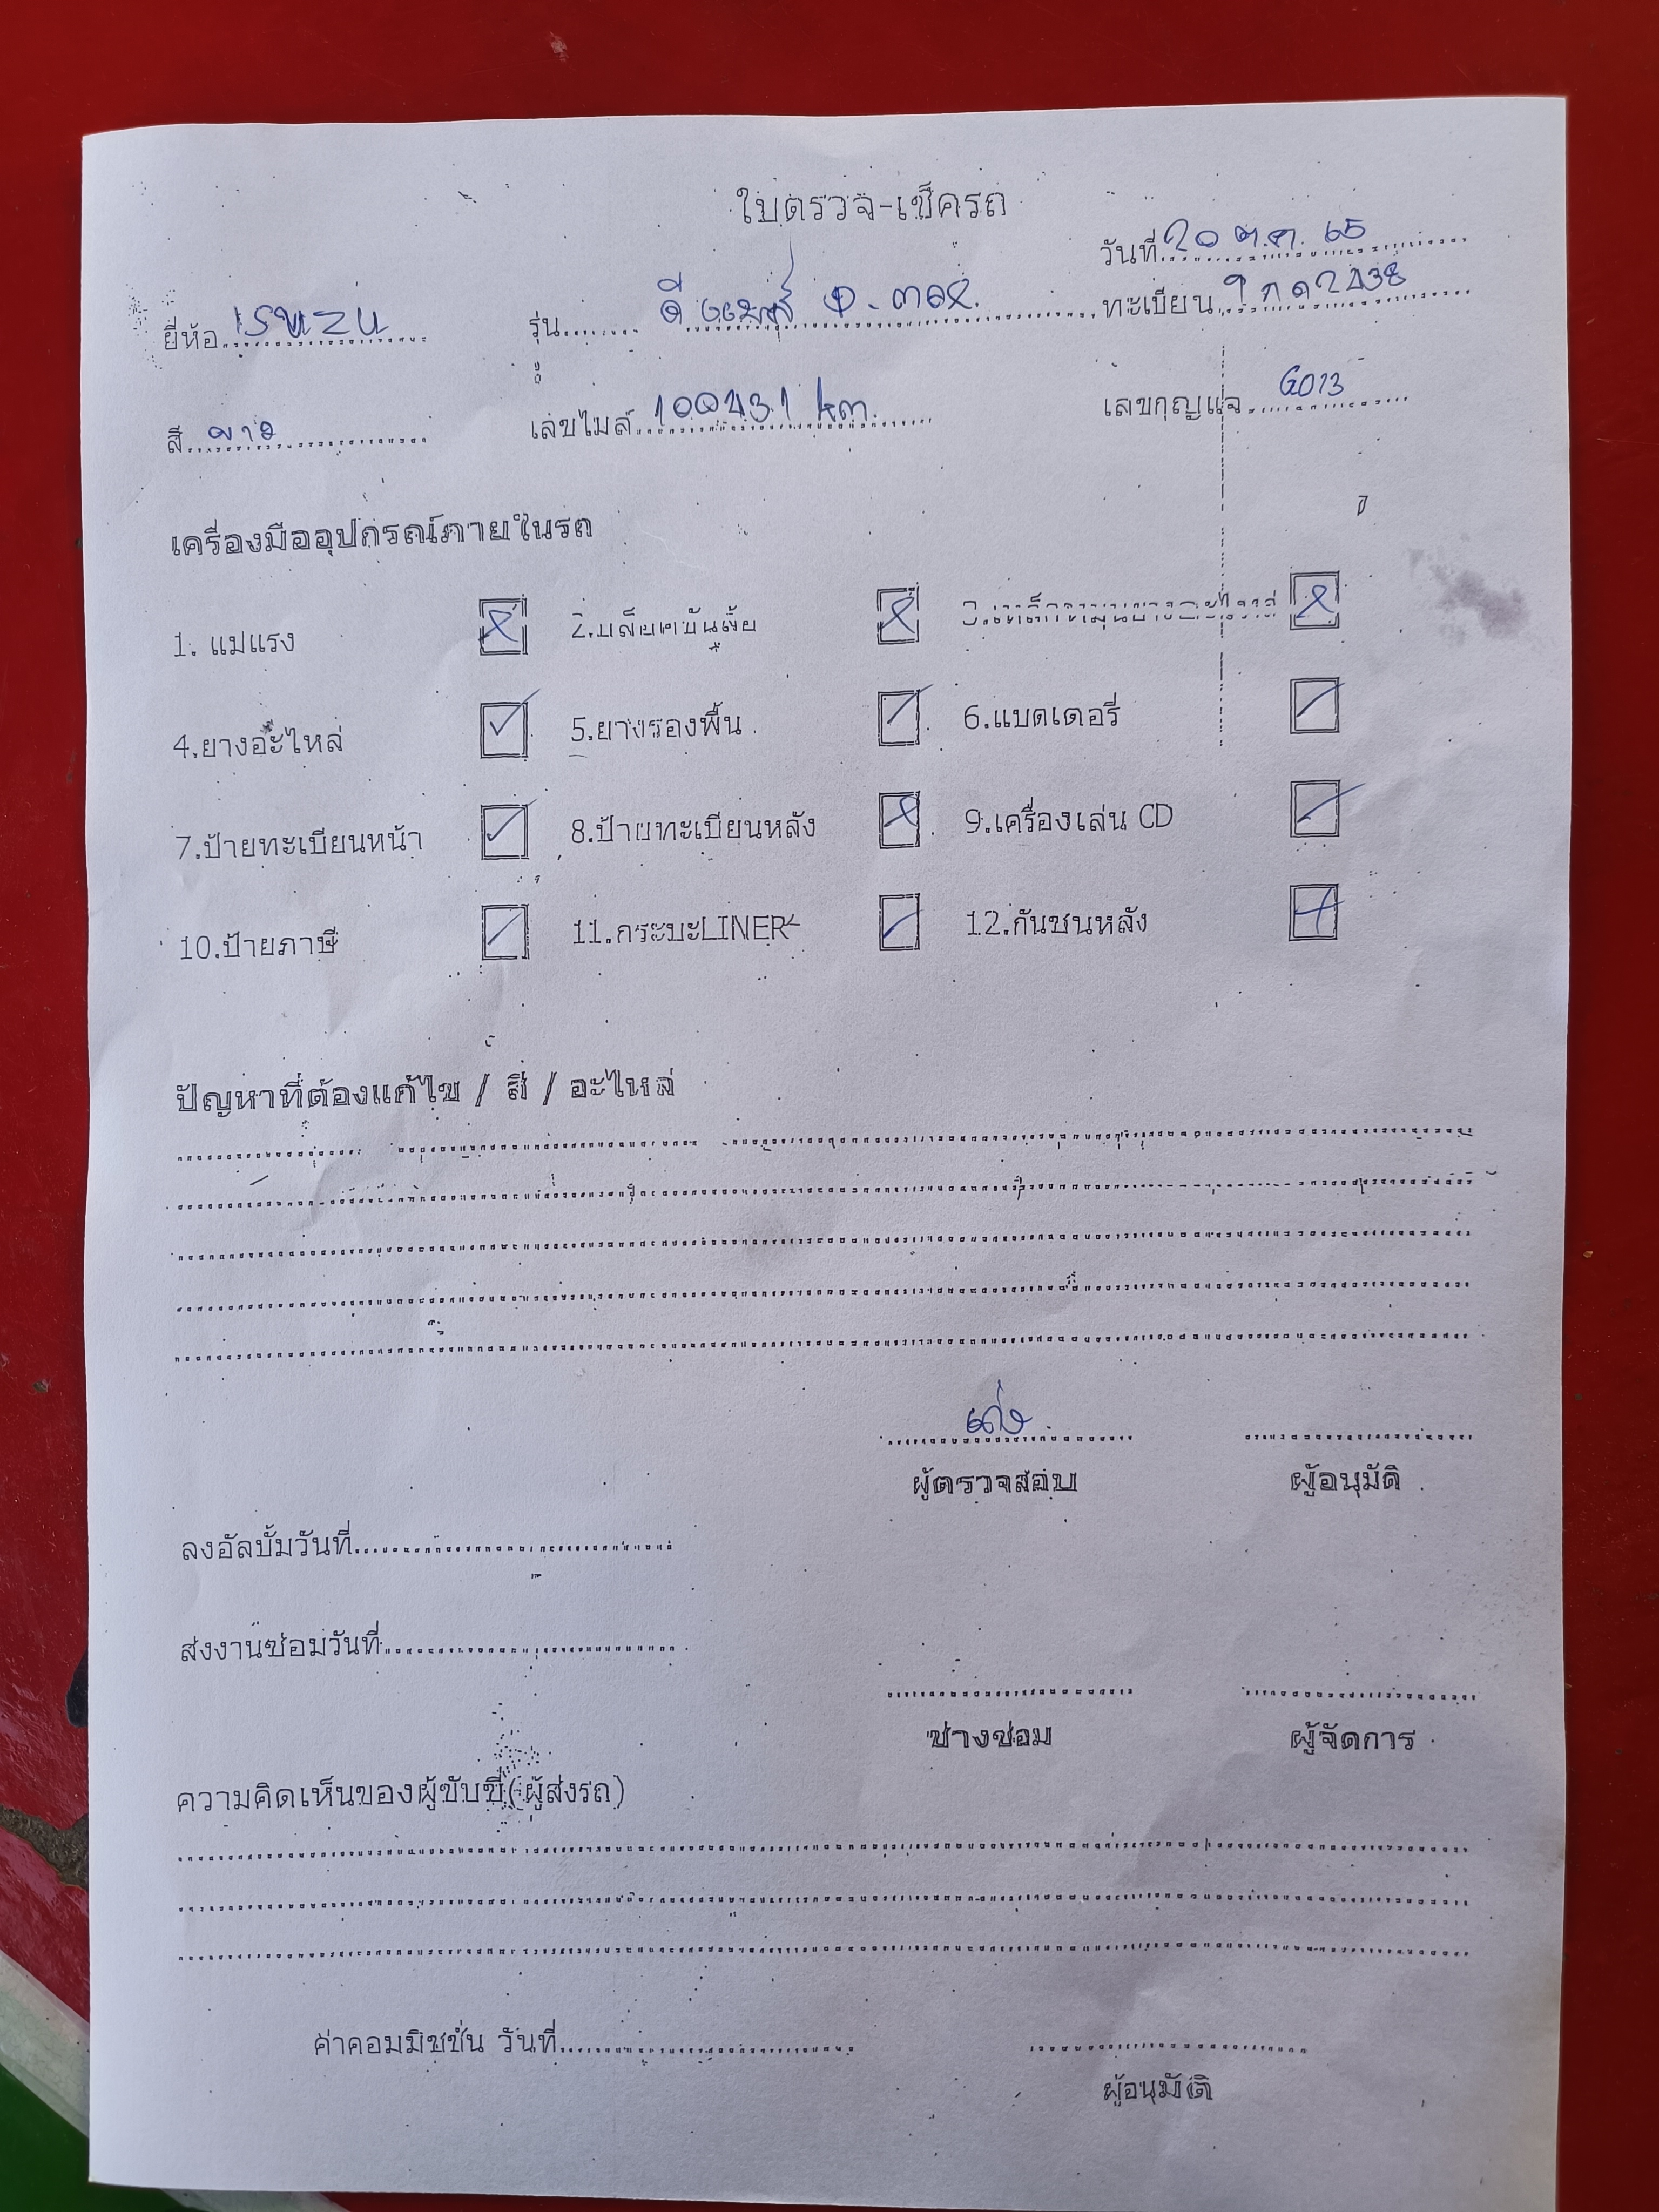 ใบตรวจ-เช็ครถ
วันที่ 20 ต.ค. 65
ยี่ห้อ ISUZU รุ่น ดีแมกซ์ D-MAX ทะเบียน
สี ขาว เลขไมล์ 100431 km. เลขกุญแจ G013
เครื่องมืออุปกรณ์ภายในรถ
1. แม่แรง 2.บล็อคขันล้อ
4.ยางอะไหล่ 5.ยางรองพื้น 6.แบตเตอรี่
7.ป้ายทะเบียนหน้า 8.ป้ายทะเบียนหลัง 9.เครื่องเล่น CD
10.ป้ายภาษี 11.กระบะLINER 12.กันชนหลัง
ปัญหาที่ต้องแก้ไข / สี / อะไหล่
ผู้ตรวจสอบ ผู้อนุมัติ
ลงอัลบั้มวันที่
ส่งงานซ่อมวันที่
ช่างซ่อม ผู้จัดการ
ความคิดเห็นของผู้ขับขี่(ผู้ส่งรถ)
ค่าคอมมิชชั่น วันที่
ผู้อนุมัติ